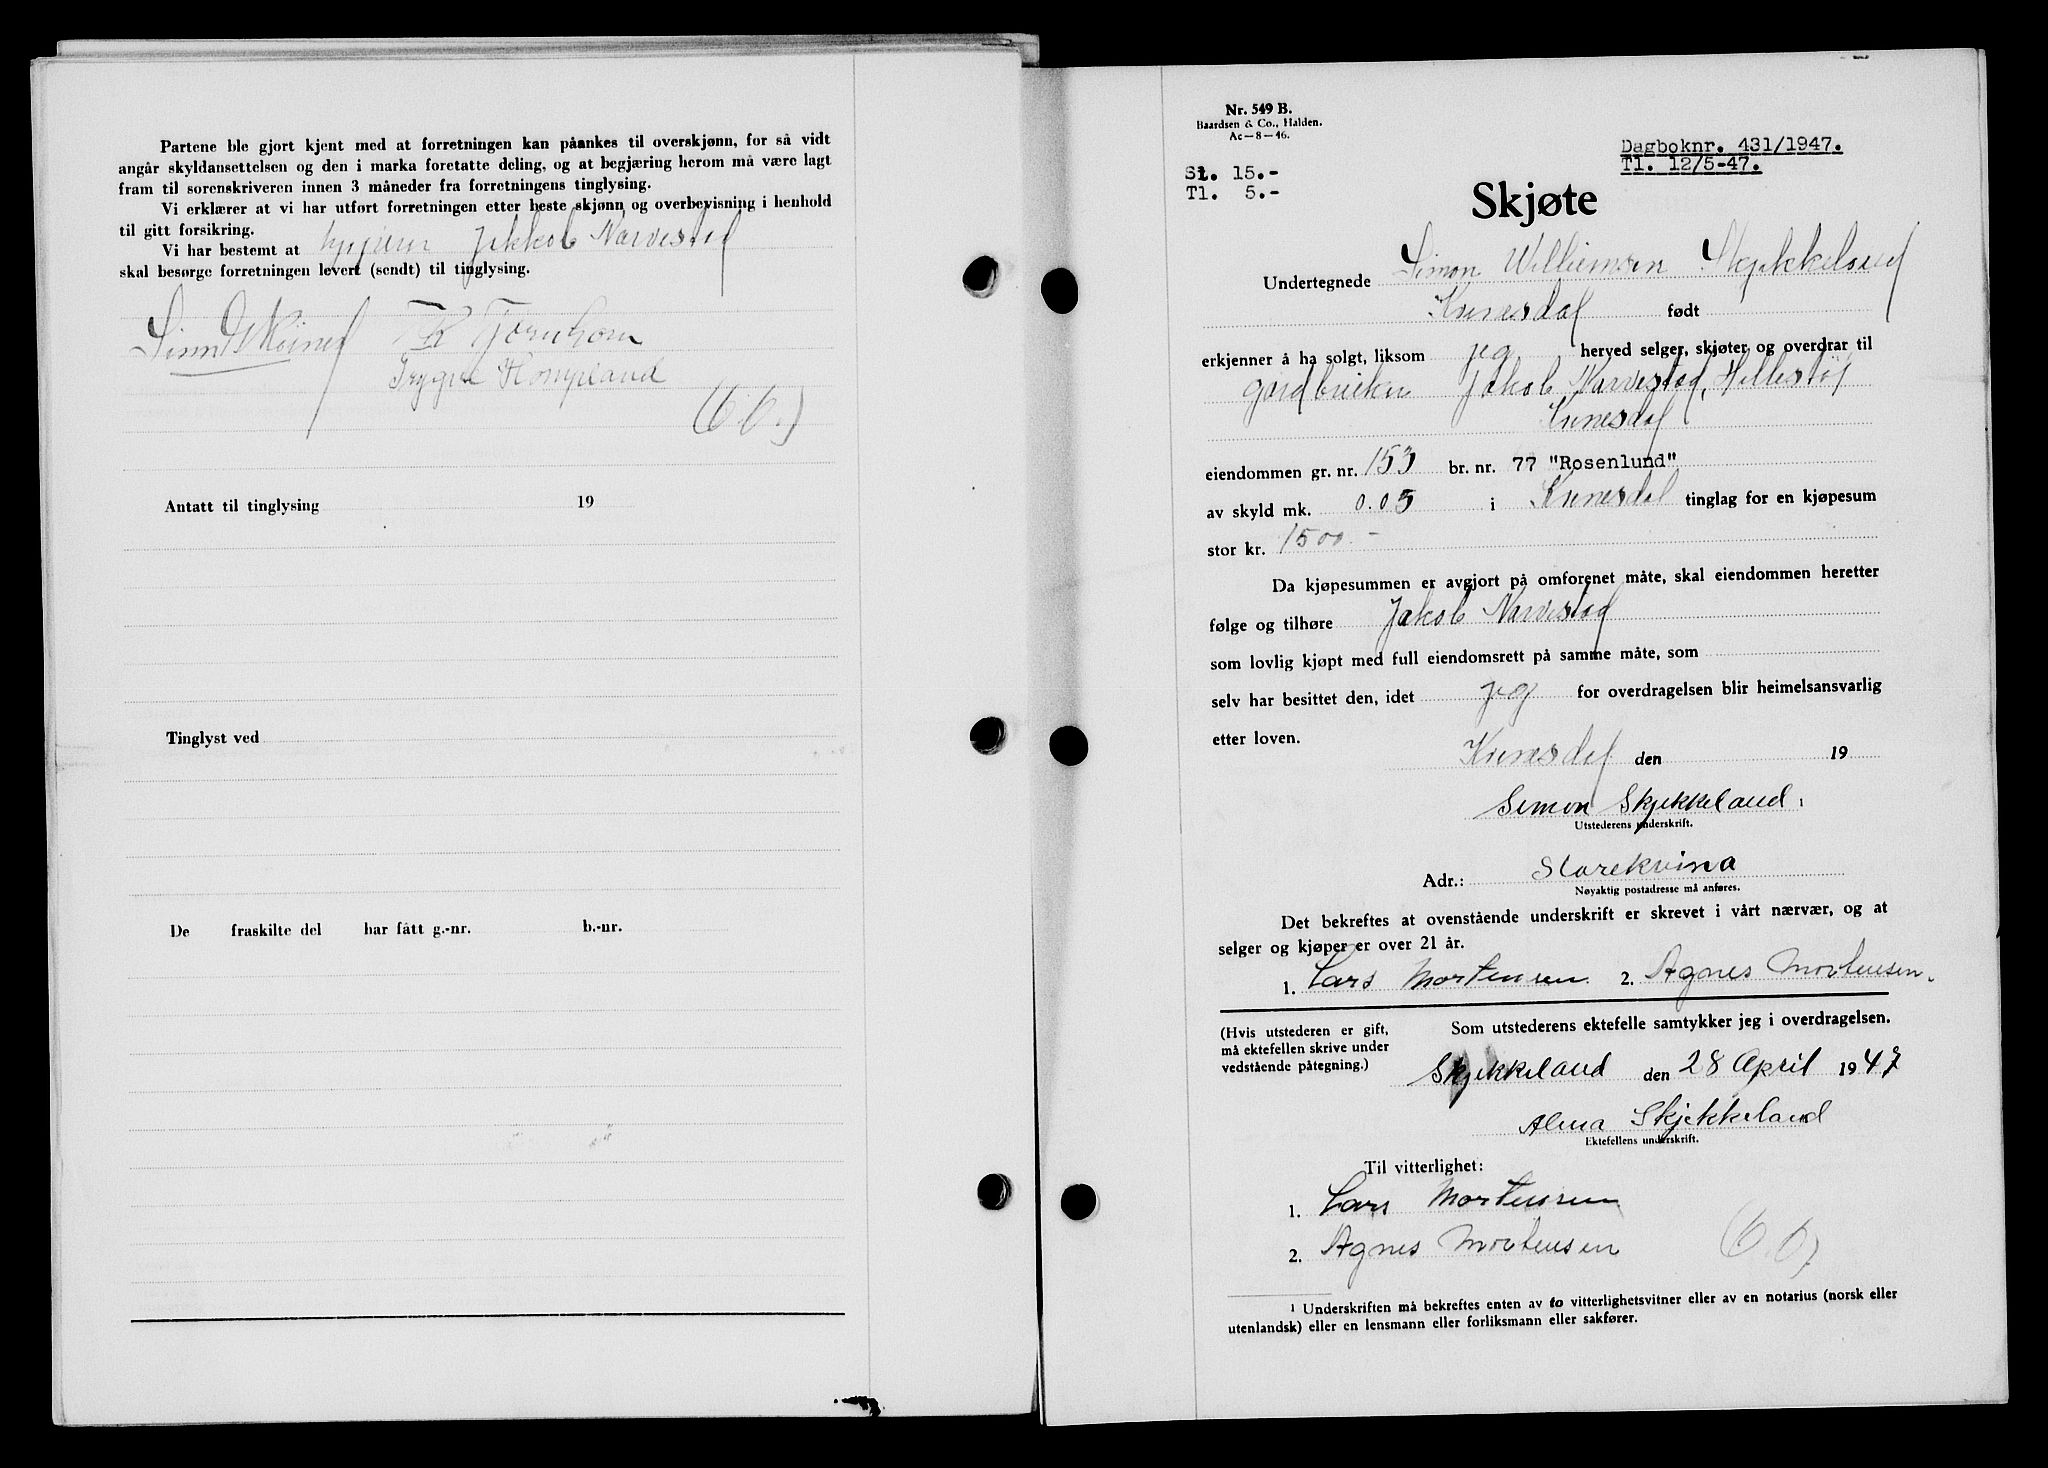 Partene ble gjort kjent med at forretningen kan påankes til overskjønn, for så vidt
angår skyldansettelsen og den i marka foretatte deling, og at begjæring herom må være lagt
fram til sorenskriveren innen 3 måneder fra forretningens tinglysing.
Vi erklærer at vi har utført forretningen etter beste skjønn og overbevisning i henhold
til gitt forsikring.
Vi har bestemt at kjøperen Jakkob Narvestad
skal besørge forretningen levert (sendt) til tinglysing.
Trygve Hompland
Antatt til tinglysing 19
Tinglyst ved
De fraskilte del har fått g.-nr. b.-nr.
Nr. 549 B.
Baardsen & Co., Halden.
Ac—8—46.
Dagboknr. 431/1947.
Tl. 12/5-47.
St. 15.-
Tl. 5.-
Skjøte
Undertegnede Simon Williemsen Skjekkeland
Kvinesdal født
erkjenner å ha solgt, liksom jeg herved selger, skjøter og overdrar til
gardbruker Jakob Narvestad, Hellestøl
Kvinesdal
eiendommen gr. nr. 153 br. nr. 77 "Rosenlund"
av skyld mk. 0.05 i Kvinesdal tinglag for en kjøpesum
stor kr. 1500.-
Da kjøpesummen er avgjort på omforenet måte, skal eiendommen heretter
følge og tilhøre Jakob Narvestad
som lovlig kjøpt med full eiendomsrett på samme måte, som
selv har besittet den, idet jeg for overdragelsen blir heimelsansvarlig
etter loven.
Kvinesdal den 19
Simon Skjekkeland 1
Utstederens underskrift.
Adr.: Storekvina
Nøyaktig postadresse må anføres.
Det bekreftes at ovenstående underskrift er skrevet i vårt nærvær, og at
selger og kjøper er over 21 år.
1. Lars Mortensen 2. Agnes Mortensen.
(Hvis utstederen er gift, Som utstederens ektefelle samtykker jeg i overdragelsen.
må ektefellen skrive under
vedstående påtegning.)
Skjekkeland den 28 April 1947
Alma Skjekkeland
Ektefellens underskrift.
Til vitterlighet:
1. Lars Mortensen
2. Agnes Mortensen
1 Underskriften må bekreftes enten av to vitterlighetsvitner eller av en notarius (norsk eller
utenlandsk) eller en lensmann eller forliksmann eller sakfører.